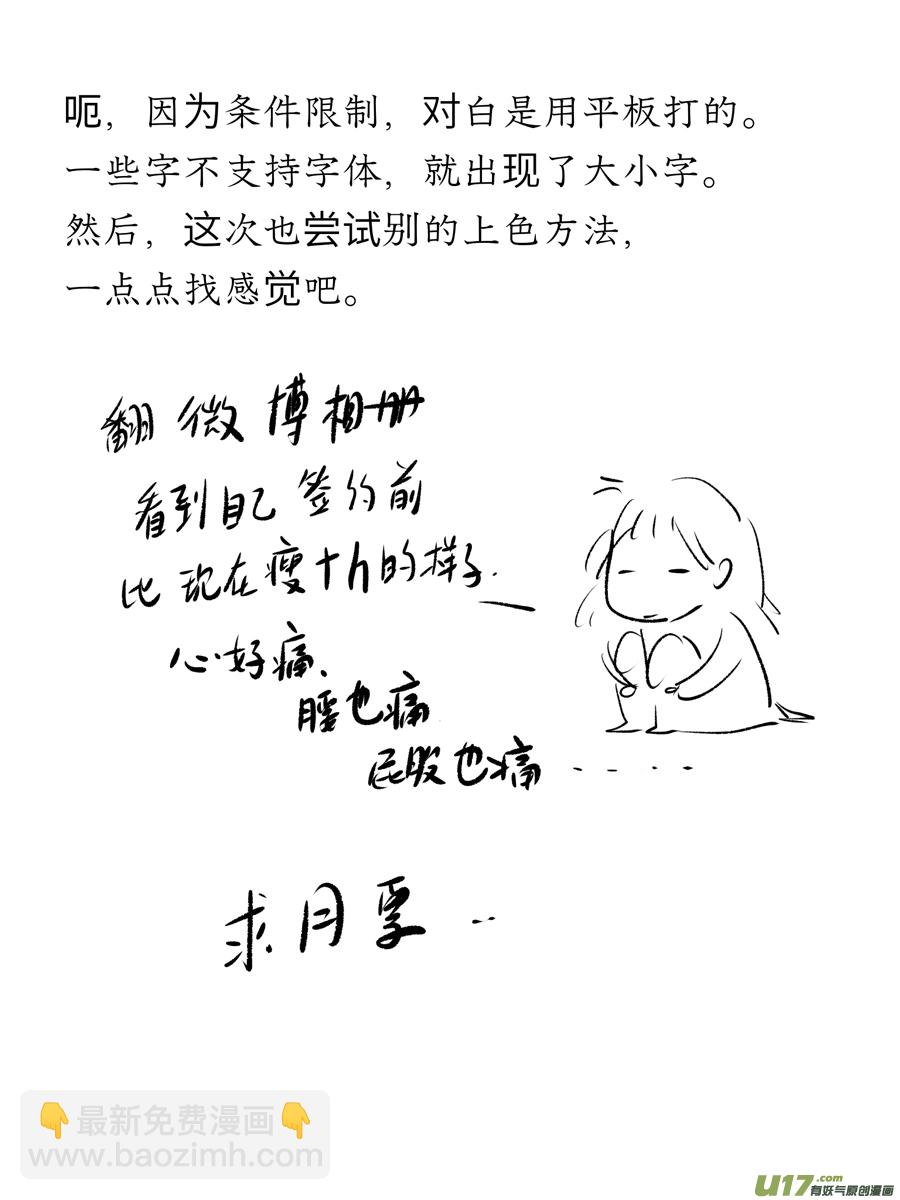 呃，因为条件限制，对白是用平板打的。
一些字不支持字体，就出现了大小字。
然后，这次也尝试别的上色方法，
一点点找感觉吧。
翻微博相册
看到自己签约前
比现在瘦十几的样子.
心好痛.
腰也痛
屁股也痛.....
求月票..
👇最新免费漫画👇
www.baozimh.com
U17.com
有妖气原创漫画